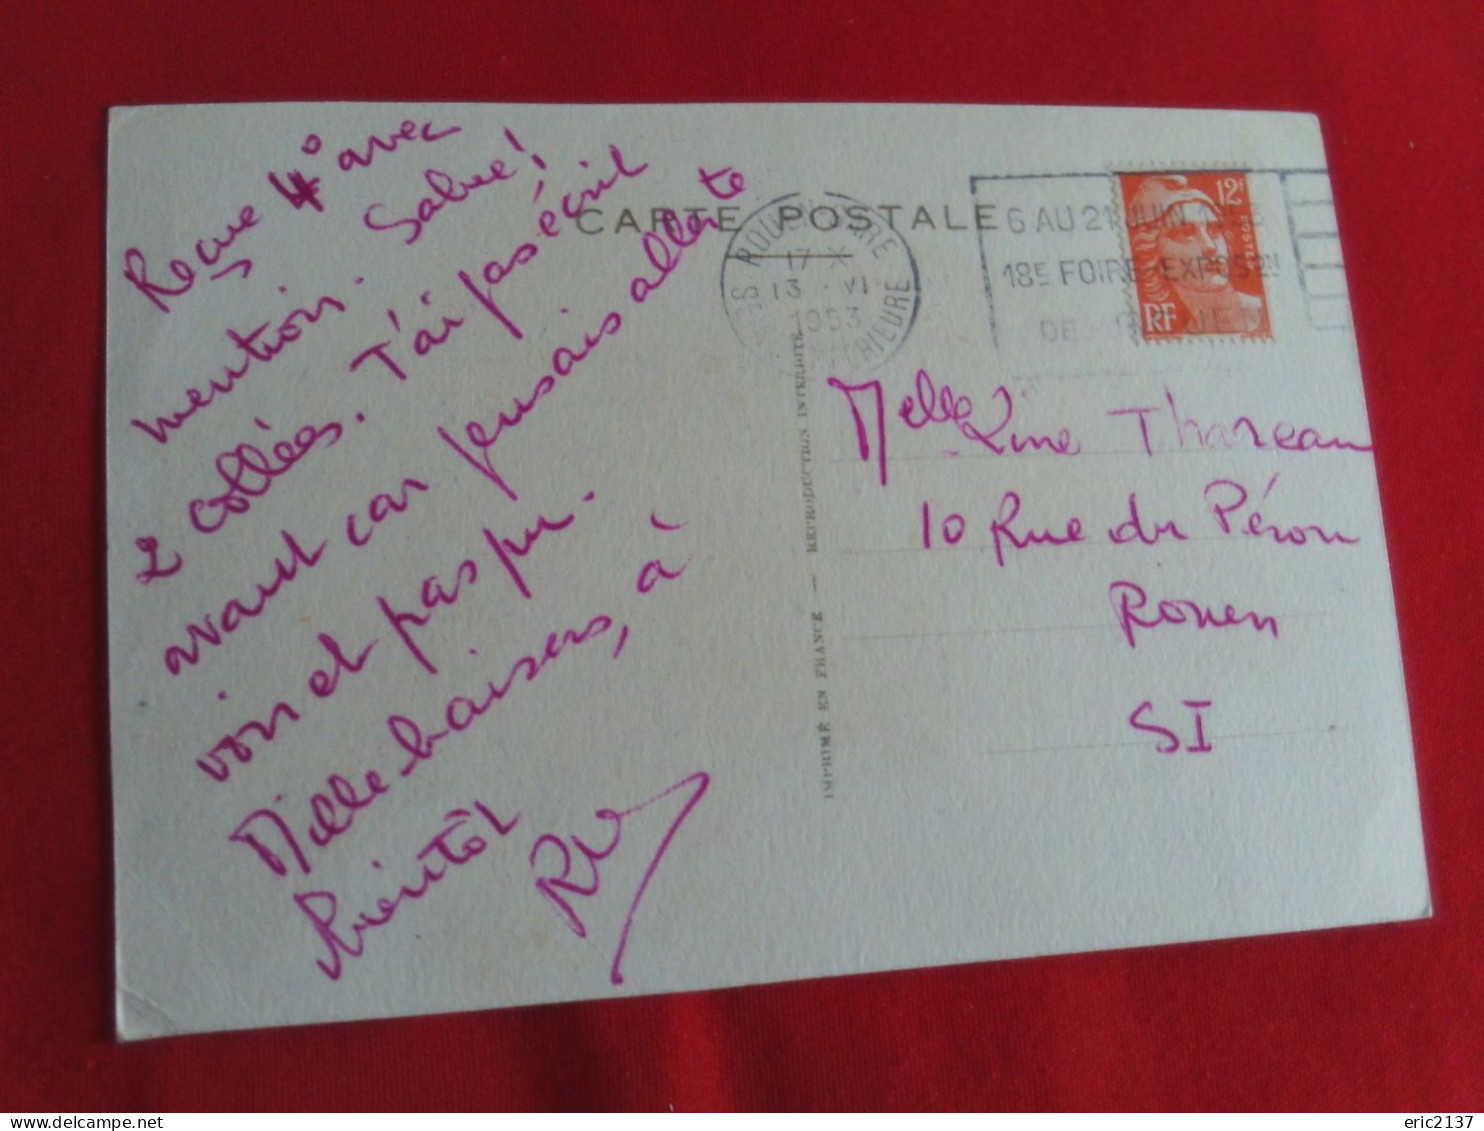 Reçue 4° avec
mention. Sabre!
2 collées. T'ai pas écrit
avant car pensais aller te
voir et pas pu.
Mille baisers, à
bientôt
CARTE POSTALE
ROUEN GARE
17 X
13 VI
1953
SEINE INFERIEURE
6 AU 21 JUIN
18E FOIRE-EXPOSON
DE ROUEN
12F
POSTES
RF
IMPRIMÉ EN FRANCE — REPRODUCTION INTERDITE
Melle Line Thareau
10 Rue du Péron
Rouen
SI
eric2137
delcampe.net